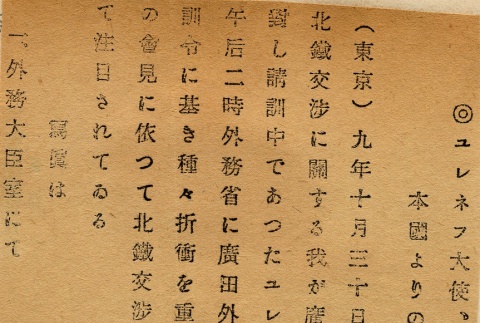 ◎ユレネフ大使。
本國よりの
(東京)九年十月三十日
北鐵交渉に關する我が
對し請訓中であつたユレ
午后二時外務省に廣田外
訓令に基き種々折衝を重
の會見に依つて北鐵交渉
て注目されてゐる
寫眞は
一、外務大臣室にて